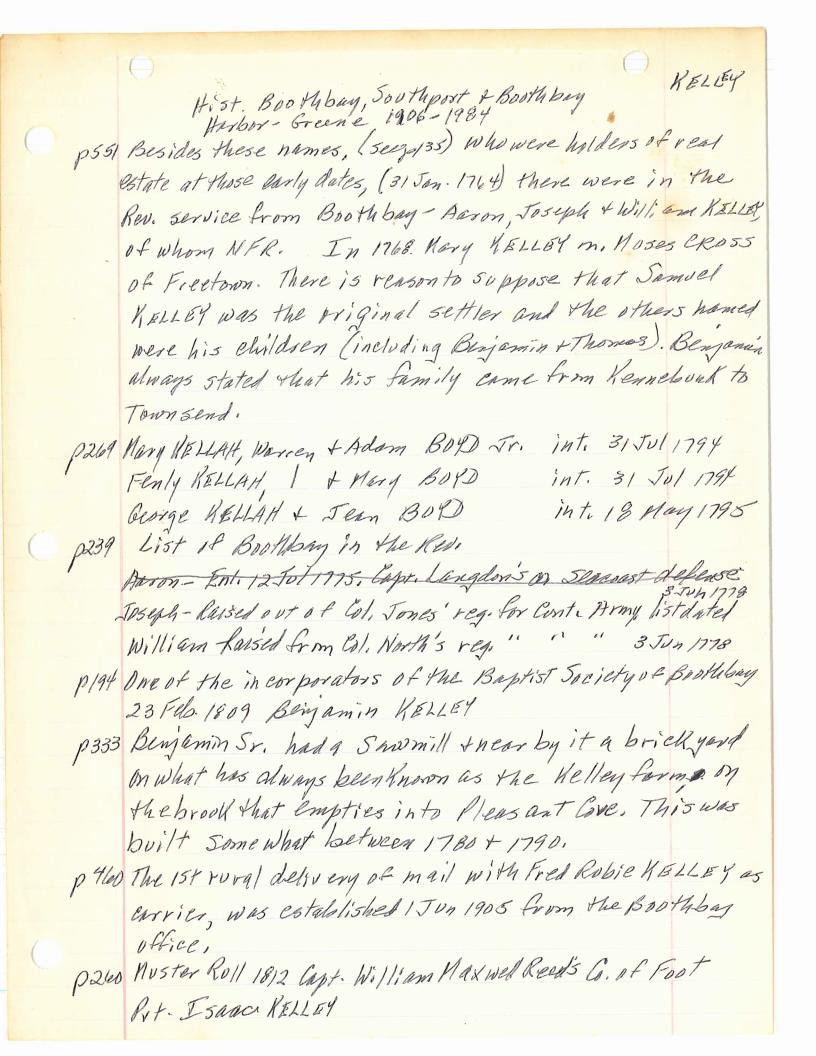 KELLEY
Hist. Boothbay, Southport & Boothbay
Harbor - Greene 1906-1984
p551 Besides these names, (see p135) who were holders of real
estate at those early dates, (31 Jan. 1764) there were in the
Rev. service from Boothbay - Aaron, Joseph & William KELLEY,
of whom NFR. In 1768 Mary KELLEY m. Moses CROSS
of Freetown. There is reason to suppose that Samuel
KELLEY was the original settler and the others named
were his children (including Benjamin & Thomas). Benjamin
always stated that his family came from Kennebunk to
Townsend.
p269 Mary KELLAH, Warren & Adam BOYD Jr. int. 31 Jul 1794
Fenly KELLAH, | & Mary BOYD int. 31 Jul 1794
George KELLAH & Jean BOYD int. 18 May 1795
p239 List of Boothbay in the Rev.
Aaron - Ent. 12 Jul 1775. Capt. Langdon's Co. Seacoast defense
3 Jun 1778
Joseph - Raised out of Col. Jones' reg. for Cont. Army list dated
William Raised from Col. North's reg. " " " 3 Jun 1778
p194 One of the incorporators of the Baptist Society of Boothbay
23 Feb. 1809 Benjamin KELLEY
p333 Benjamin Sr. had a sawmill & near by it a brick yard
on what has always been known as the Kelley farm, on
the brook that empties into Pleasant Cove. This was
built somewhat between 1780 & 1790.
p460 The 1st rural delivery of mail with Fred Robie KELLEY as
carrier, was established 1 Jun 1905 from the Boothbay
office.
p260 Muster Roll 1812 Capt. William Maxwell Reed's Co. of Foot
Pvt. Isaac KELLEY